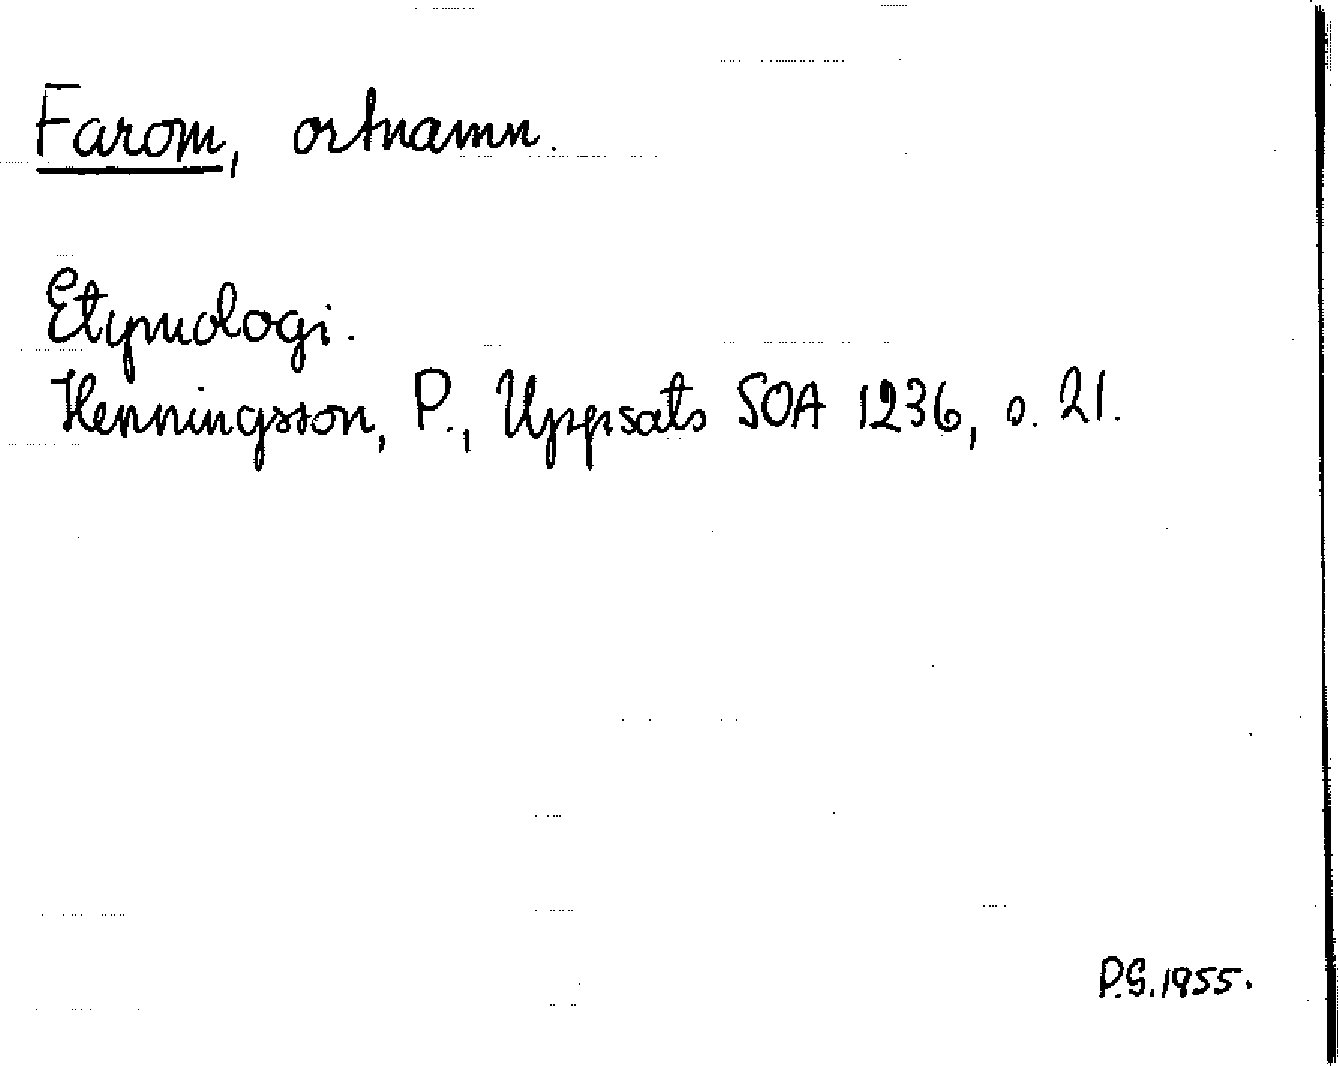 Farom, ortnamn.
Etymologi.
Henningsson, P., Uppsats SOA 1236, s. 21.
P.G. 1955.